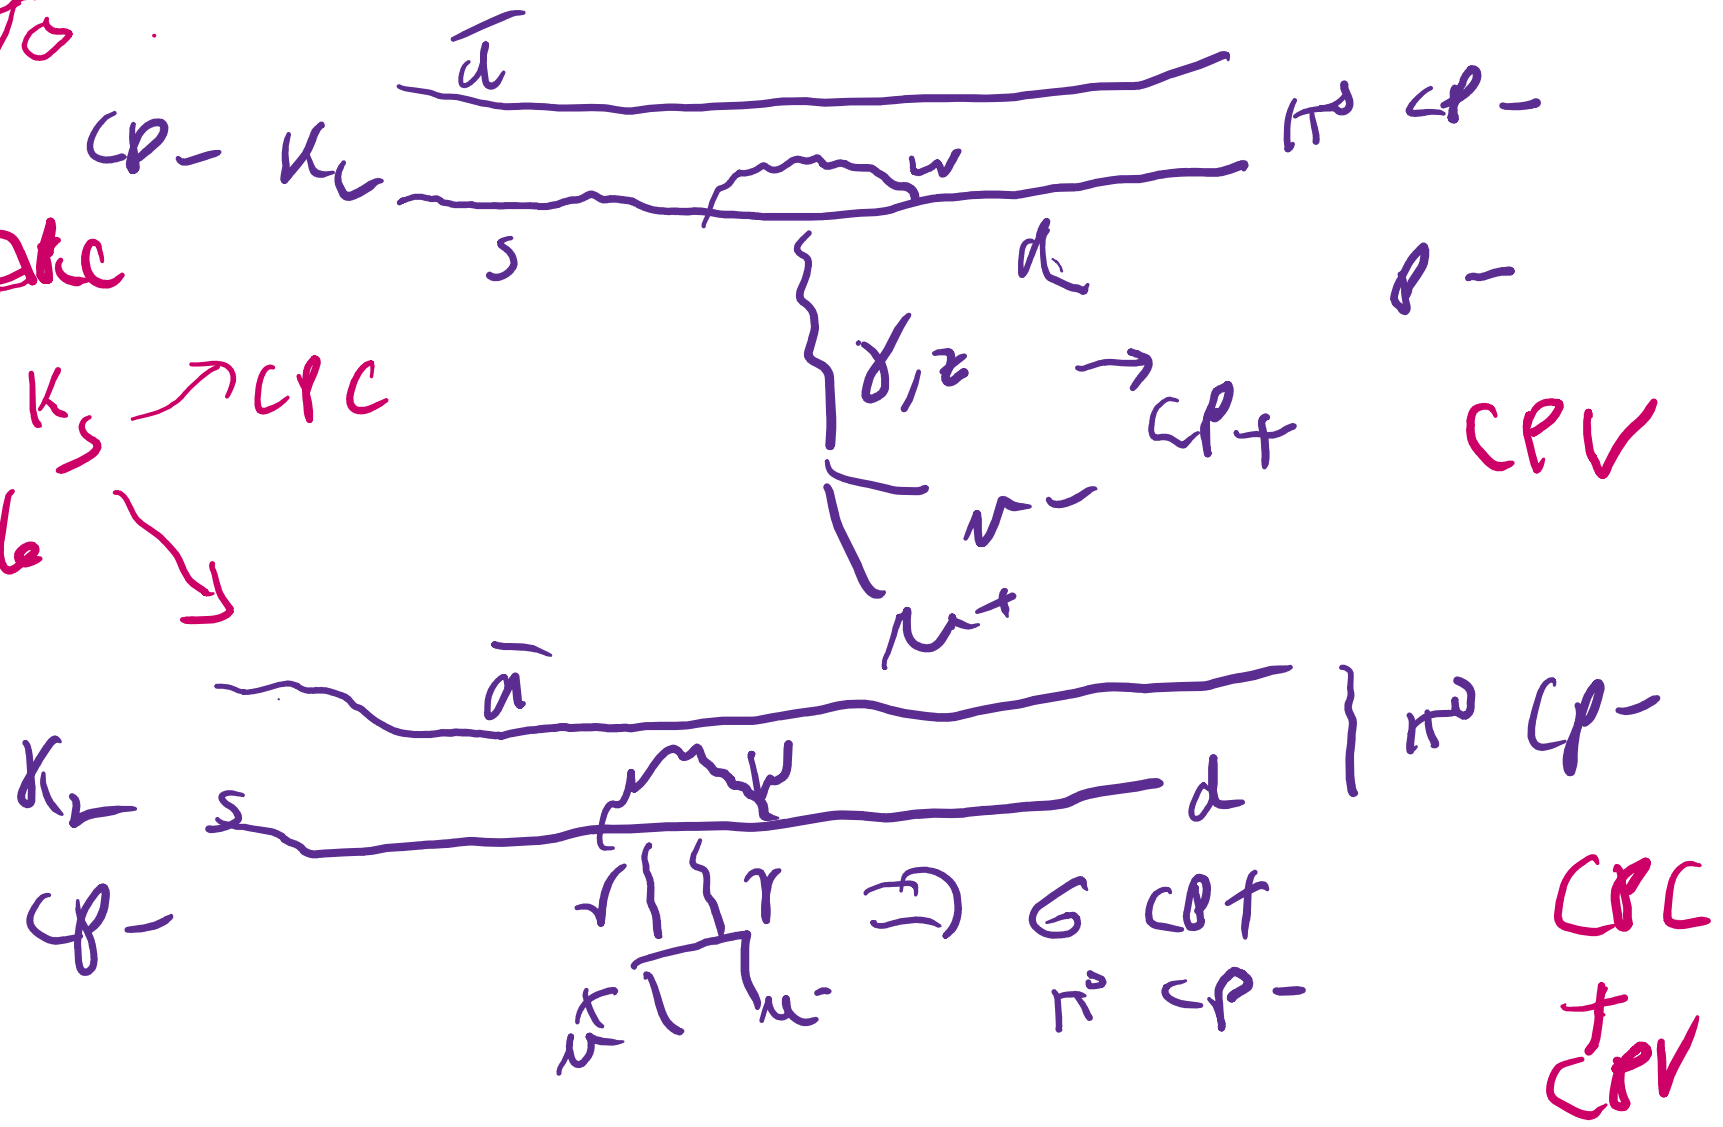 d̅
CP - K_L
W
π⁰ CP -
s
d
P -
γ, z → CP+
CPV
K_S → CPC
μ -
μ⁺
d̅
π⁰ CP -
K_L
s
d
CP -
γ γ ⇒ σ CP+
CPC
μ⁺ μ⁻
π⁰ CP -
+
CPV